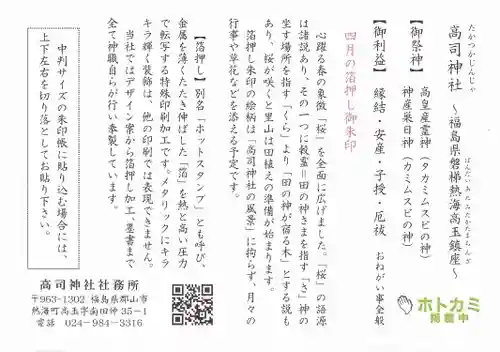 たかつかじんじゃ
高司神社 〜福島県磐梯熱海高玉鎮座〜
ばんだいあたみたかたまちんざ
【御祭神】 高皇産霊神(タカミムスビの神)
神産巣日神(カミムスビの神)
【御利益】 縁結・安産・子授・厄祓 おねがい事全般
四月の箔押し御朱印
心躍る春の象徴「桜」を全面に広げました。「桜」の語源
は諸説あり、その一つに穀霊＝田の神さまを指す「さ」神の
坐す場所を指す「くら」より「田の神が宿る木」とする説も
あり、桜が咲くと里山は田植えの準備が始まります。
箔押し朱印の絵柄は「高司神社の風景」に拘らず、月々の
行事や草花などを添える予定です。
【箔押し】別名「ホットスタンプ」とも呼び、
金属を薄くたたき伸ばした「箔」を熱と高い圧力
で転写する特殊印刷加工です。メタリックにキラ
キラ輝く装飾は、他の印刷では表現できません。
当社ではデザイン案から箔押し加工、墨書まで
全て神職自らが行い奉製しています。
中判サイズの朱印帳に貼り込む場合には、
上下左右を切り落としてお貼り下さい。
高司神社社務所
〒963-1302 福島県郡山市
熱海町高玉字南田仲35−1
電話 024-984-3316
ホトカミ
掲載中